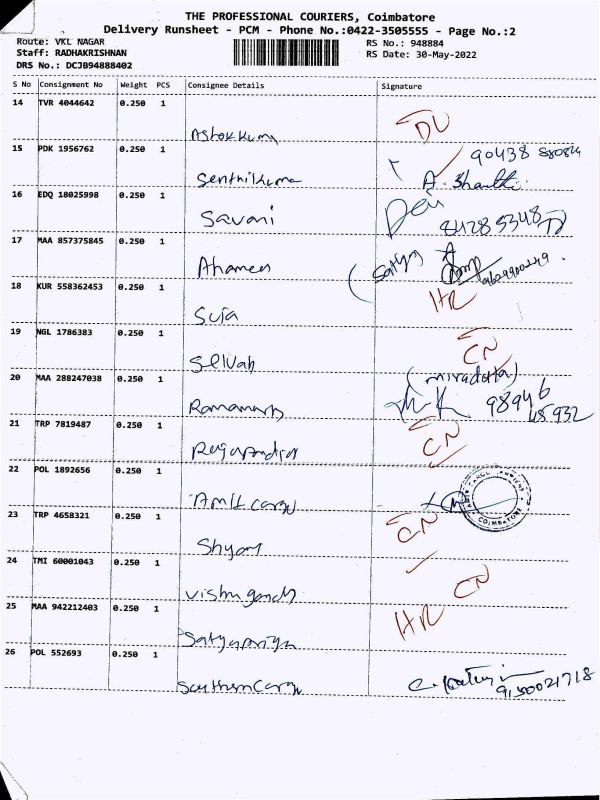 THE PROFESSIONAL COURIERS, Coimbatore
Delivery Runsheet - PCM - Phone No.:0422-3505555 - Page No.:2
Route: VKL NAGAR RS No.: 948884
Staff: RADHAKRISHNAN RS Date: 30-May-2022
DRS No.: DCJB94888402
S No Consignment No Weight PCS Consignee Details Signature
14 TVR 4044642 0.250 1
Ashok Kumar DL
15 PDK 1956762 0.250 1 90438
Senthilkumar A. Shanthi
16 EDQ 18025998 0.250 1
Savani
17 MAA 857375845 0.250 1
Ahamed (Satya
18 KUR 558362453 0.250 1 HR
Suja
19 NGL 1786383 0.250 1 CN
Selvah
20 MAA 288247038 0.250 1
98946
48932
21 TRP 7819487 0.250 1 CN
22 POL 1892656 0.250 1
COIMBATORE
23 TRP 4658321 0.250 1 CN
Shyam
24 TMI 60001043 0.250 1 CN
25 MAA 942212403 0.250 1 HR
Satyapriya
26 POL 552693 0.250 1
Southern Cargo 9150021718